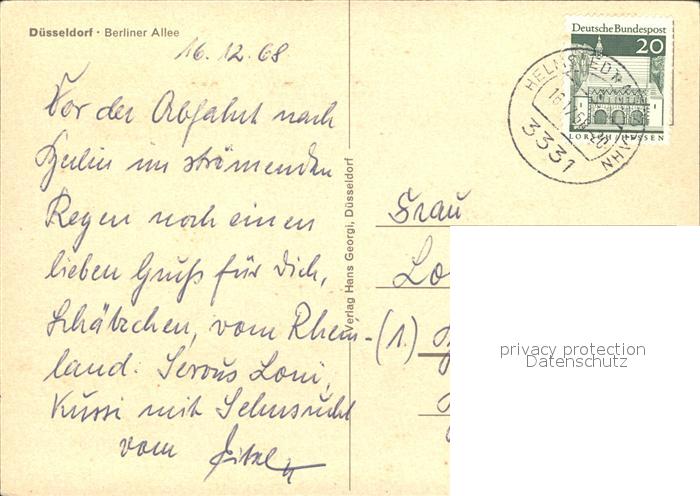 Düsseldorf · Berliner Allee
16.12.68
Vor der Abfahrt nach
Berlin im strömenden
Regen noch einen
lieben Gruß für Dich,
Schätzchen, vom Rhein-
land. Servus Loni,
Kussi mit Sehnsucht
vom
Verlag Hans Georgi, Düsseldorf
Deutsche Bundespost
20
LORSCH / HESSEN
HELMSTEDT
3331
Frau
Lo
(1)
privacy protection
Datenschutz